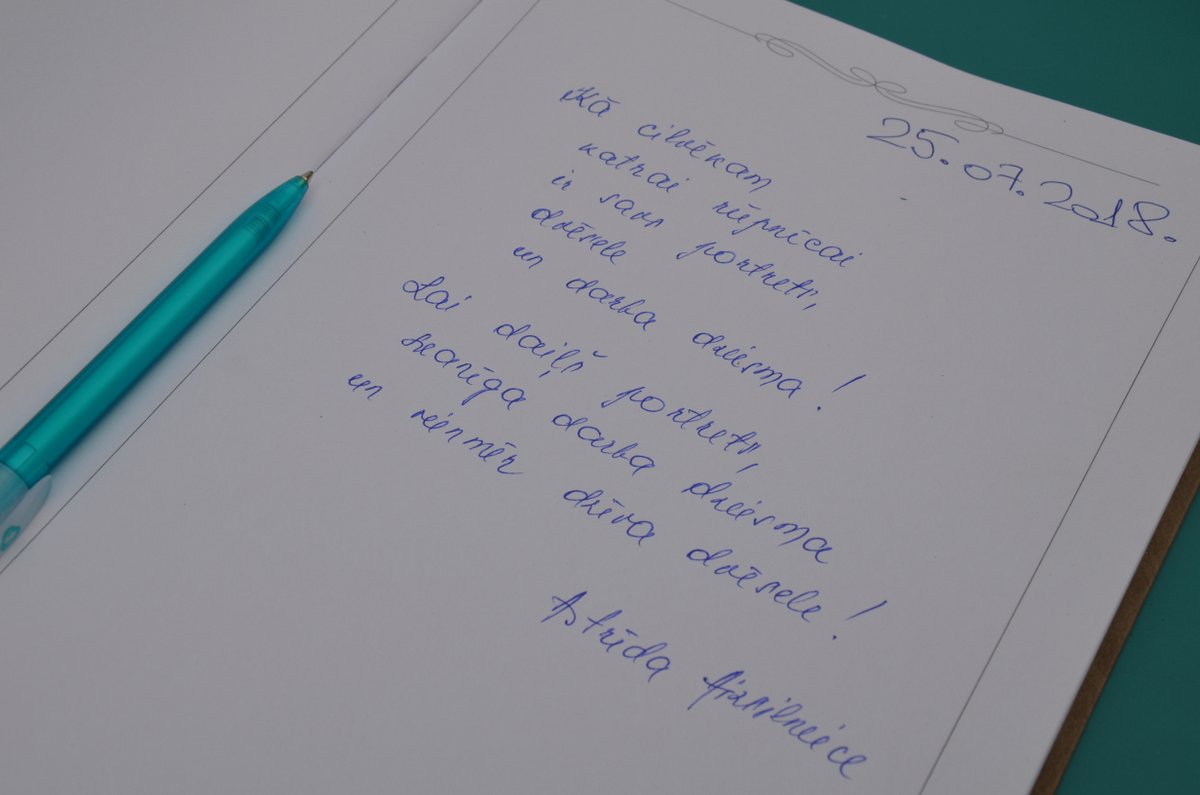 25.07.2018.
Kā cilvēkam
katrai rūpnīcai
ir savs portrets,
dvēsele
un darba dziesma!
Lai daiļš portrets,
skanīga darba dziesma
un vienmēr dzīva dvēsele!
Astrīda